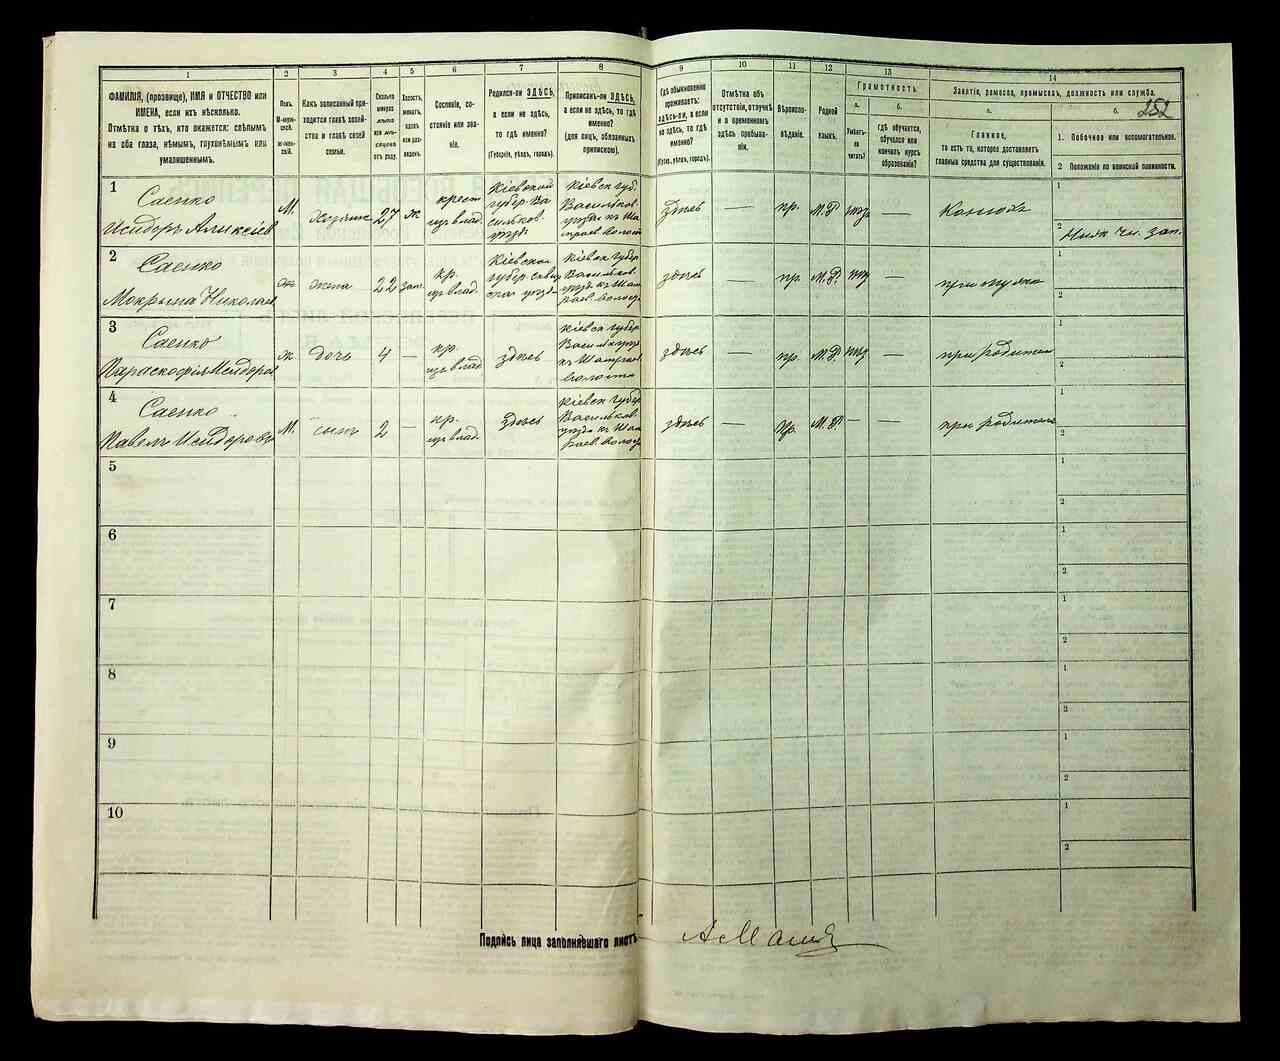 1
2
3
4
5
6
7
8
9
10
11
12
13
14
ФАМИЛІЯ, (прозвище), ИМЯ и ОТЧЕСТВО или
ИМЕНА, если ихъ нѣсколько.
Отмѣтка о тѣхъ, кто окажется: слѣпымъ
на оба глаза, нѣмымъ, глухонѣмымъ или
умалишеннымъ.
Полъ.
М-мужской.
Ж-женскій.
Какъ записанный приходится
главѣ хозяйства
и главѣ своей
семьи.
Сколько
минуло
лѣтъ
или мѣсяцевъ
отъ роду.
Холостъ,
женатъ,
вдовъ
или разведенъ.
Сословіе, состояніе
или званіе.
Родился-ли ЗДѢСЬ,
а если не здѣсь,
то гдѣ именно?
(Губернія, уѣздъ, городъ).
Приписанъ-ли ЗДѢСЬ,
а если не здѣсь, то гдѣ
именно?
(для лицъ, обязанныхъ
припискою).
Гдѣ обыкновенно
проживаетъ:
здѣсь-ли, а если
не здѣсь, то гдѣ
именно?
(Губер., уѣздъ, городъ).
Отмѣтка объ
отсутствіи, отлучкѣ
и о временномъ
здѣсь пребываніи.
Вѣроисповѣданіе.
Родной
языкъ.
Грамотность.
а.
б.
Умѣетъ-ли
читать?
гдѣ обучается,
обучался или
кончилъ курсъ
образованія?
Занятіе, ремесло, промыселъ, должность или служба.
252
а.
б.
Главное,
то есть то, которое доставляетъ
главныя средства для существованія.
1. Побочное или вспомогательное.
2 Положеніе по воинской повинности.
1
Саенко
Исидоръ Алексіев
М.
хозяинъ
27
ж
крест
изъ влад.
Кіевской
губер. Васильков.
уѣзд.
Кіевск губ.
Васильков.
уѣзда
здѣсь
—
пр.
М.Р.
—
Конюхъ
1
2
Ниж чи. зап.
2
Саенко
Мокрына Николаев
ж
жена
22
зам.
кр.
изъ влад.
Кіевской
губер
уѣзд
Кіевск губер
Васильков.
здѣсь
—
пр.
М.Р.
—
при мужѣ
1
2
3
Саенко
Параскофія Исидоров
ж
дочь
4
—
кр.
изъ влад.
здѣсь
Кіевск губер
волости
здѣсь
—
пр.
М.Р.
—
при родител
1
2
4
Саенко
Павелъ Исидоровъ
М.
сынъ
2
—
кр.
изъ влад.
здѣсь
Кіевск губер
Васильков.
здѣсь
—
пр.
М.Р.
—
—
при родител
1
2
5
1
2
6
1
2
7
1
2
8
1
2
9
1
2
10
1
2
Подпись лица заполнявшаго листъ